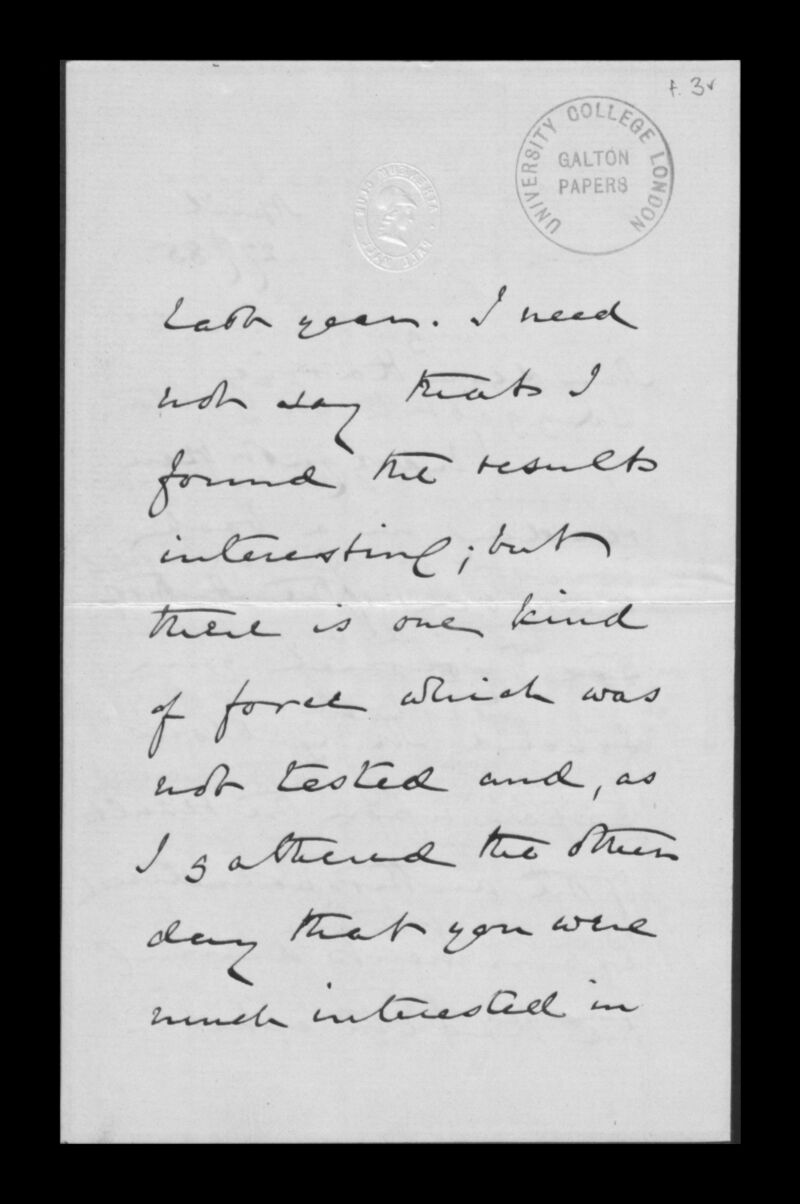 f. 3v
UNIVERSITY COLLEGE LONDON
GALTON
PAPERS
last year. I need
not say that I
found the results
interesting; but
there is one kind
of force which was
not tested and, as
I gathered the other
day that you were
much interested in